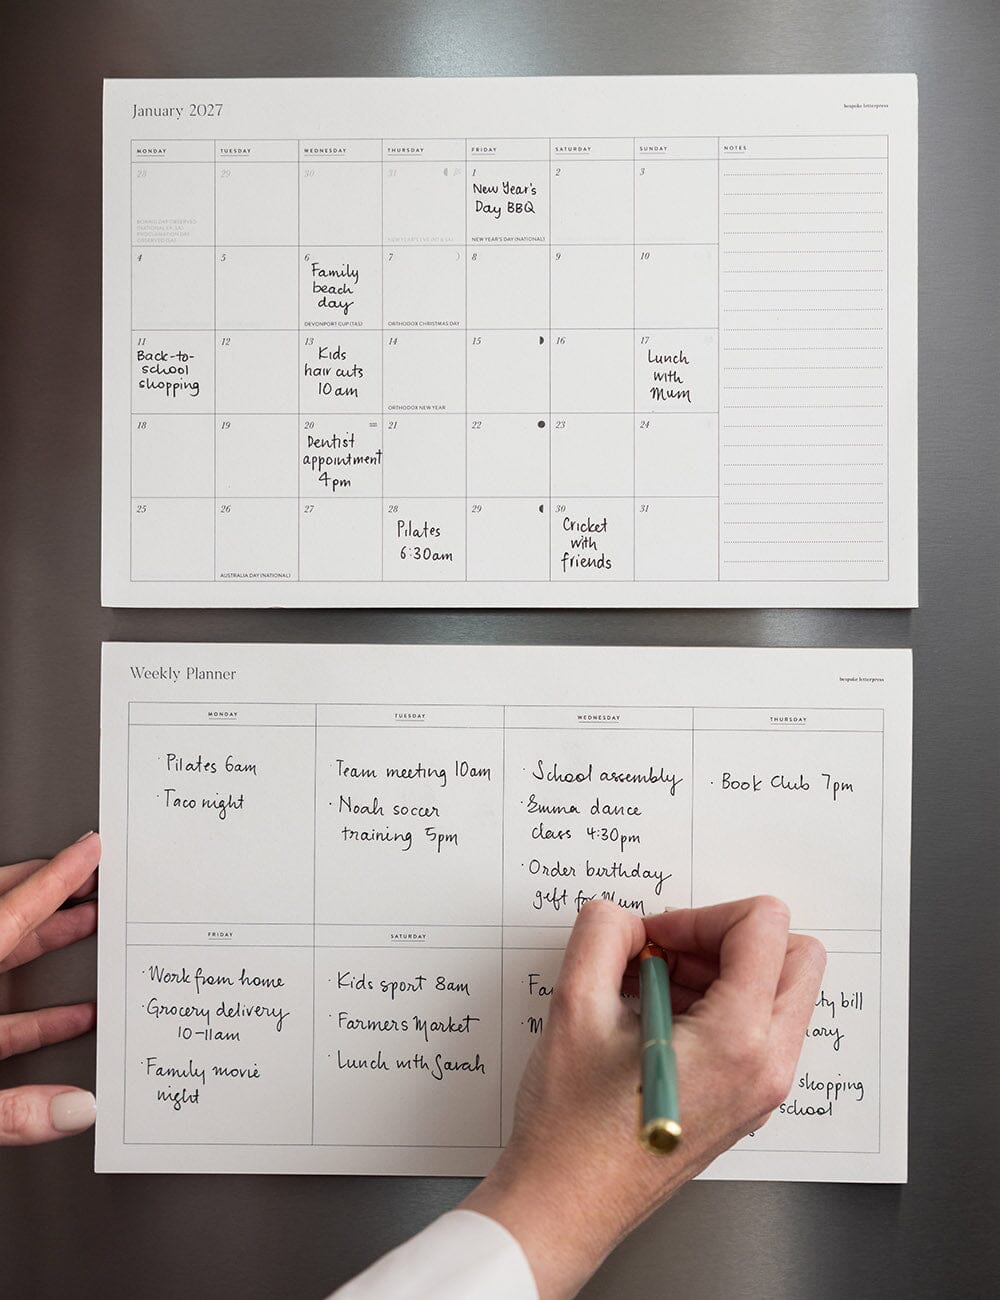 January 2027
bespoke letterpress
MONDAY TUESDAY WEDNESDAY THURSDAY FRIDAY SATURDAY SUNDAY NOTES
28 29 30 31 1 2 3
New Year's
Day BBQ
PROCLAMATION DAY
OBSERVED (SA)
NEW YEAR'S EVE (NT & SA)
NEW YEAR'S DAY (NATIONAL)
4 5 6 7 8 9 10
Family
beach
day
DEVONPORT CUP (TAS)
ORTHODOX CHRISTMAS DAY
11 12 13 14 15 16 17
Back-to-
school
shopping
Kids
hair cuts
10am
Lunch
with
Mum
ORTHODOX NEW YEAR
18 19 20 21 22 23 24
Dentist
appointment
4pm
25 26 27 28 29 30 31
Pilates
6:30am
Cricket
with
friends
AUSTRALIA DAY (NATIONAL)
Weekly Planner
bespoke letterpress
MONDAY TUESDAY WEDNESDAY THURSDAY
· Pilates 6am
· Taco night
· Team meeting 10am
· Noah soccer
training 5pm
· School assembly
· Emma dance
class 4:30pm
· Order birthday
gift for Mum
· Book Club 7pm
FRIDAY SATURDAY
· Work from home
· Grocery delivery
10-11am
· Family movie
night
· Kids sport 8am
· Farmers Market
· Lunch with Sarah
bill
shopping
school